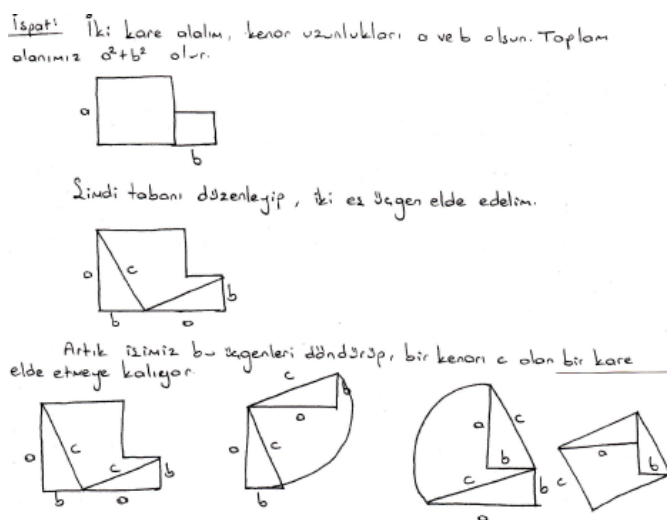 İspat: İki kare alalım, kenar uzunlukları a ve b olsun. Toplam
alanımız a²+b² olur.
a
b
Şimdi tabanı düzenleyip, iki eş üçgen elde edelim.
a c b
b a
Artık işimiz bu üçgenleri döndürüp, bir kenarı c olan bir kare
elde etmeye kalıyor.
a c c b
b a
c b
a
a c
b
a c
b
c b
a
a b
c